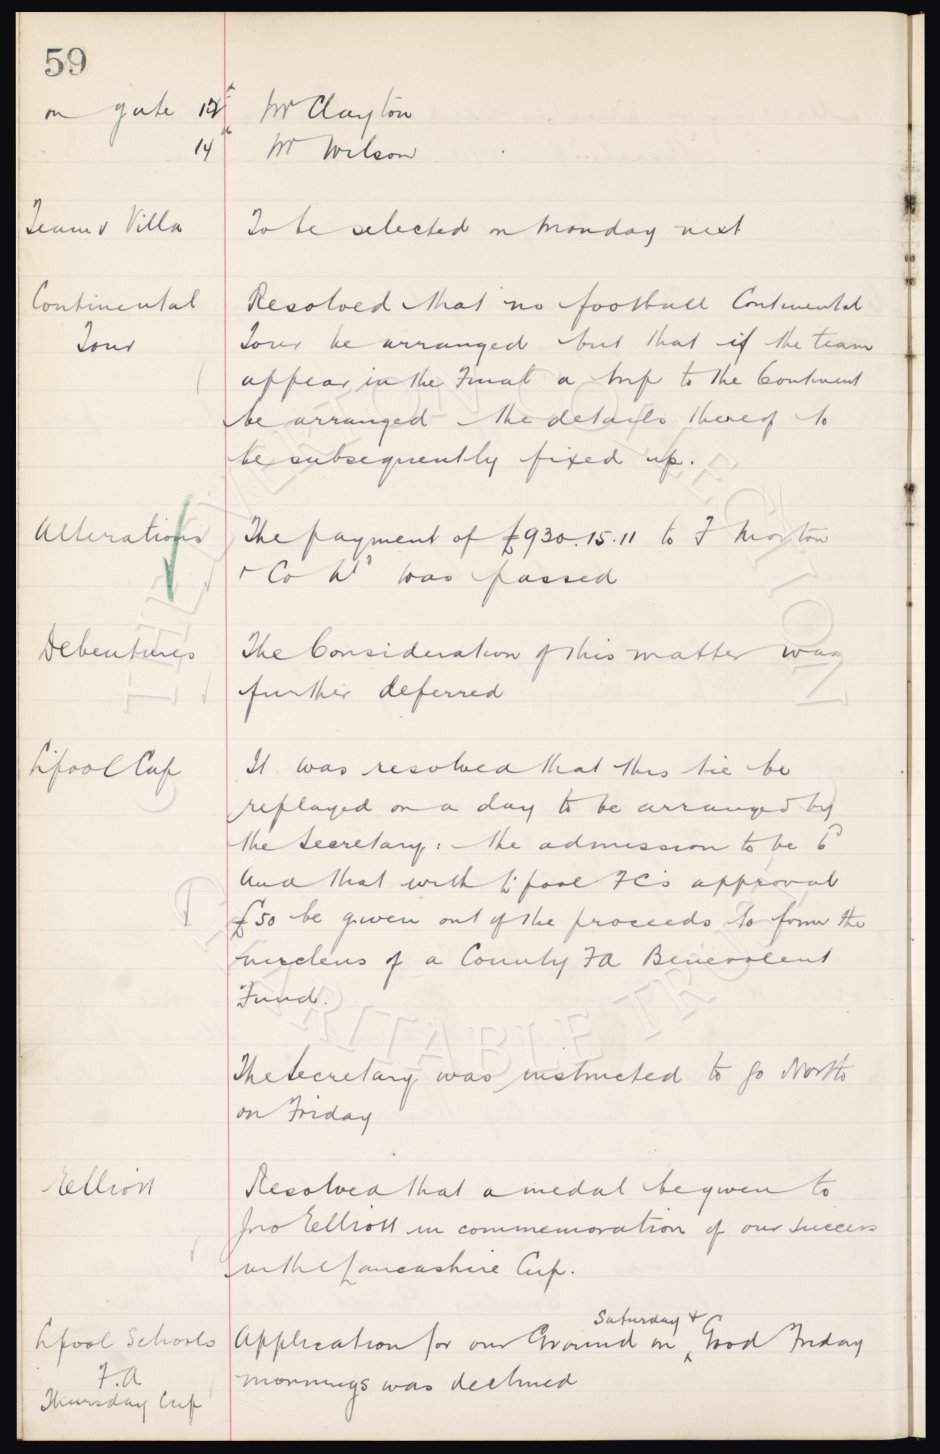 59
on gate 12th Mr Clayton
14th Mr Wilson
Team v Villa To be selected on Monday next
Continental Resolved that no football Continental
Tour Tour be arranged but that if the team
appear in the Final a trip to the Continent
be arranged the details thereof to
be subsequently fixed up.
Alterations The payment of £930.15.11 to F Morton
& Co Ld was passed
Debentures The Consideration of this matter was
further deferred
L'pool Cup It was resolved that this tie be
replayed on a day to be arranged by
the Secretary: the admission to be 6d
And that with L'pool FC's approval
£50 be given out of the proceeds to form the
nucleus of a County FA Benevolent
Fund.
The Secretary was instructed to go North
on Friday
Elliott Resolved that a medal be given to
Jno Elliott in commemoration of our success
in the Lancashire Cup.
L'pool Schools Application for our Ground on Saturday & Good Friday
F.A mornings was declined
Thursday Cup
THE EVERTON COLLECTION
CHARITABLE TRUST